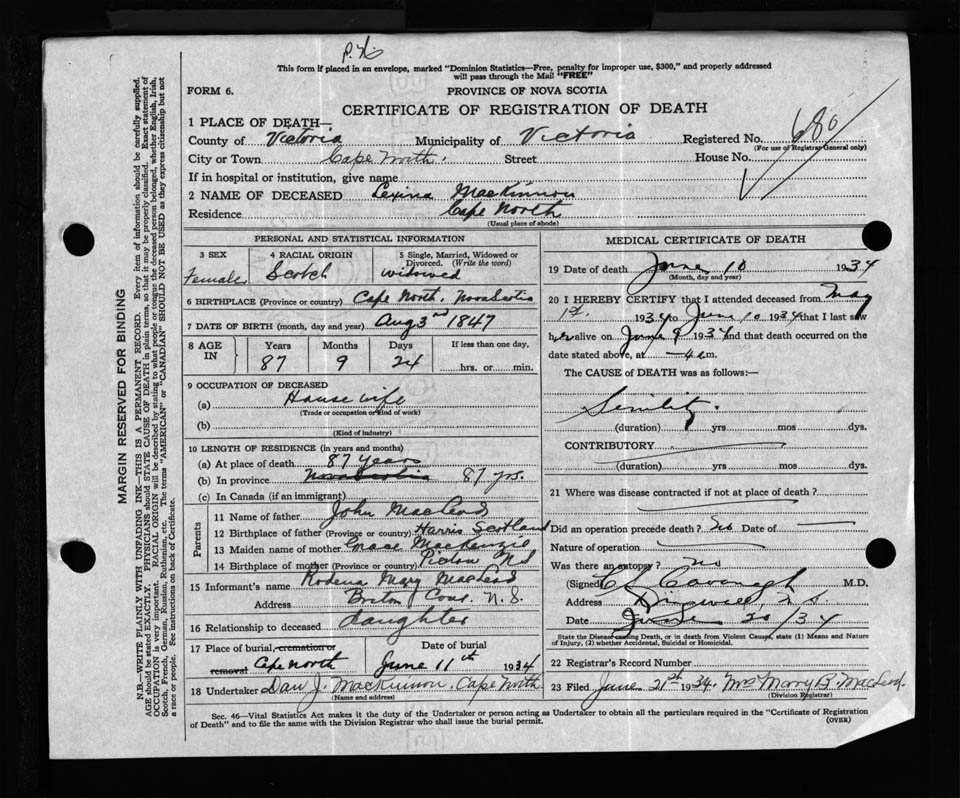 This form if placed in an envelope, marked "Dominion Statistics—Free, penalty for improper use, $300," and properly addressed
will pass through the Mail "FREE"
FORM 6.
PROVINCE OF NOVA SCOTIA
CERTIFICATE OF REGISTRATION OF DEATH
1 PLACE OF DEATH—
County of Victoria Municipality of Victoria Registered No. 680
(For use of Registrar General only)
City or Town Cape North. Street House No.
If in hospital or institution, give name
2 NAME OF DECEASED Lexina MacKinnon
Residence Cape North
(Usual place of abode)
PERSONAL AND STATISTICAL INFORMATION
3 SEX 4 RACIAL ORIGIN 5 Single, Married, Widowed or Divorced. (Write the word)
Female Scotch widowed
6 BIRTHPLACE (Province or country) Cape North. Nova Scotia
7 DATE OF BIRTH (month, day and year) Aug 3rd 1847
8 AGE IN Years Months Days If less than one day,
87 9 24 hrs. or min.
9 OCCUPATION OF DECEASED
(a) House wife
(Trade or occupation or kind of work)
(b)
(Kind of industry)
10 LENGTH OF RESIDENCE (in years and months)
(a) At place of death 87 years
(b) In province Nova Scotia 87 yrs.
(c) In Canada (if an immigrant)
Parents
11 Name of father John MacLeod
12 Birthplace of father (Province or country) Harris Scotland
13 Maiden name of mother Grace MacKenzie
14 Birthplace of mother (Province or country) Pictou NS
15 Informant's name Rodena Mary MacLeod
Address Breton Cove. N. S.
16 Relationship to deceased daughter
17 Place of burial, cremation or removal Date of burial
Cape North June 11th 1934
18 Undertaker Dan J. MacKinnon, Cape North
MEDICAL CERTIFICATE OF DEATH
19 Date of death June 10 1934
(Month, day and year)
20 I HEREBY CERTIFY that I attended deceased from May
1st. 1934 to June 10 1934 that I last saw
her alive on June 9 1934 and that death occurred on the
date stated above, at m.
The CAUSE of DEATH was as follows:—
Senility.
(duration) yrs mos dys.
CONTRIBUTORY
(duration) yrs mos dys.
21 Where was disease contracted if not at place of death?
Did an operation precede death? no Date of
Nature of operation
Was there an autopsy? no
(Signed) Cavanagh M.D.
Address N.S.
Date June 20/34
State the Disease causing Death, or in death from Violent Causes, state (1) Means and Nature
of Injury, (2) whether Accidental, Suicidal or Homicidal.
22 Registrar's Record Number
23 Filed June 21st 1934. Mrs Morry B. MacLeod.
(Division Registrar)
Sec. 46—Vital Statistics Act makes it the duty of the Undertaker or person acting as Undertaker to obtain all the particulars required in the "Certificate of Registration
of Death" and to file the same with the Division Registrar who shall issue the burial permit.
(OVER)
MARGIN RESERVED FOR BINDING
N.B.—WRITE PLAINLY WITH UNFADING INK—THIS IS A PERMANENT RECORD. Every item of information should be carefully supplied.
AGE should be stated EXACTLY. PHYSICIANS should STATE CAUSE OF DEATH in plain terms, so that it may be properly classified. Exact statement of
OCCUPATION is very important. RACIAL ORIGIN will be described by stating to what people or tongue the deceased person belonged, whether English, Irish,
Scotch, French, German, Russian, Ruthenian, etc. The terms "AMERICAN" or "CANADIAN" SHOULD NOT BE USED as they express citizenship but not
a race or people. See instructions on back of Certificate.